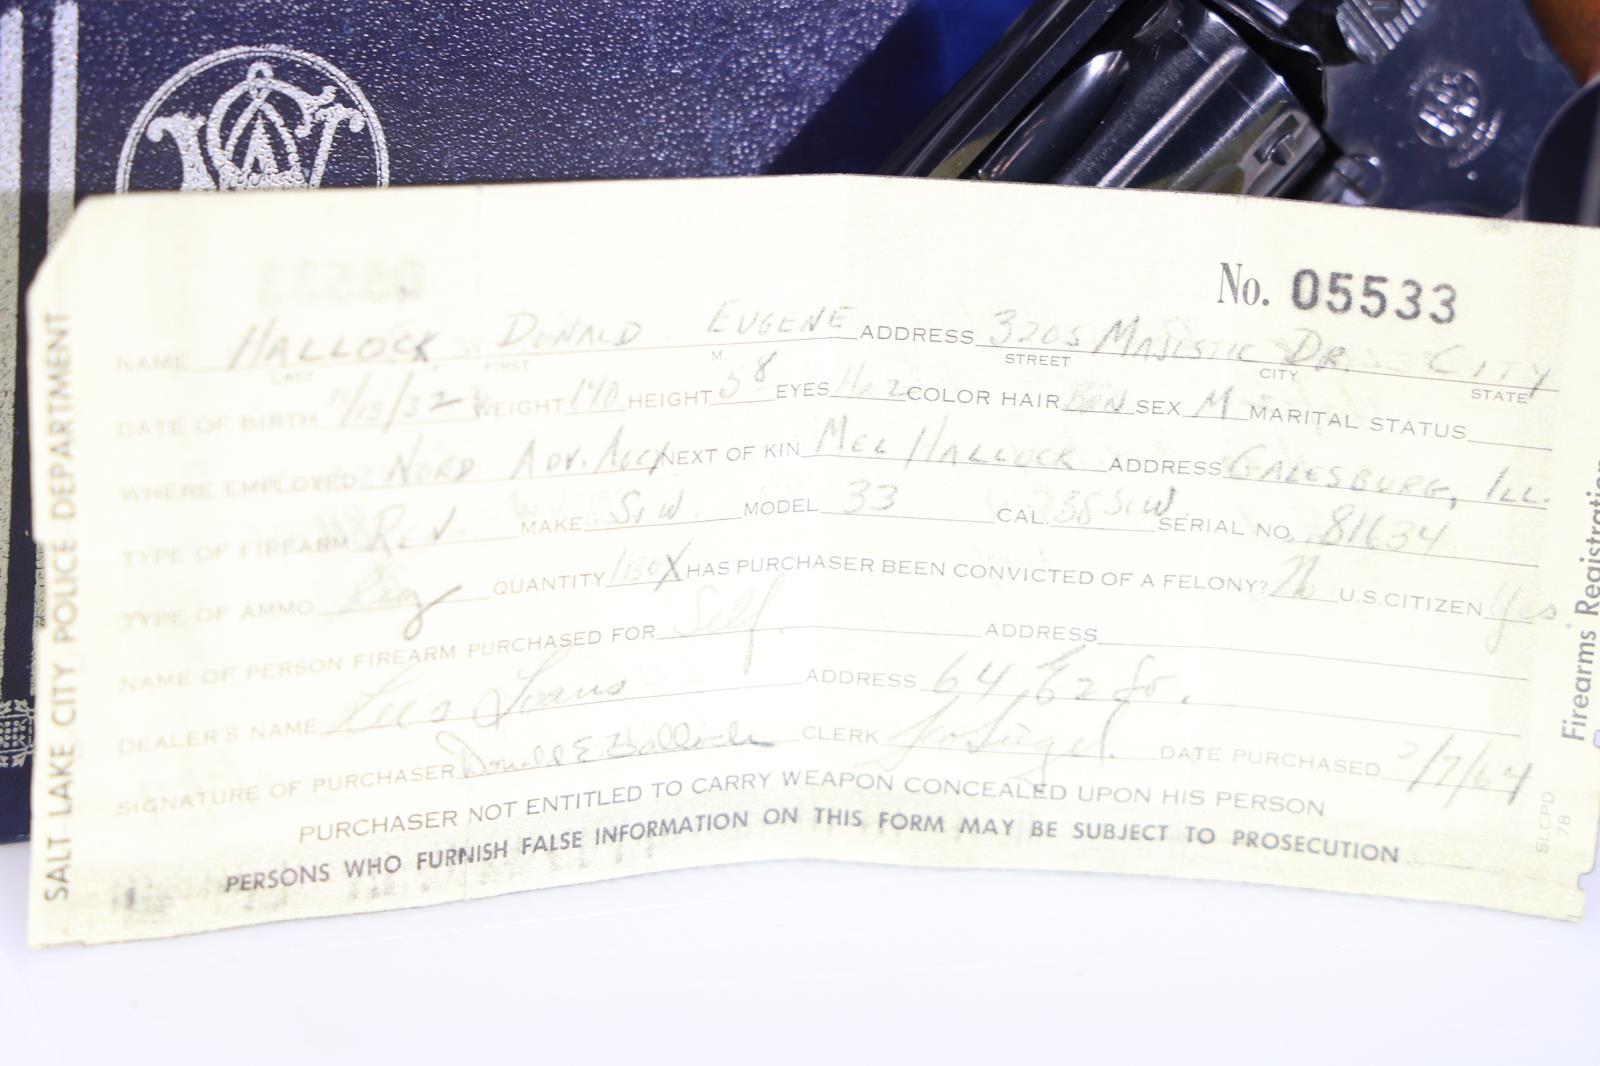 No. 05533
NAME HALLOCK DONALD EUGENE ADDRESS 3205 MAJESTIC DR. CITY
LAST FIRST M. STREET CITY STATE
DATE OF BIRTH 11/15/32 WEIGHT 140 HEIGHT 5 8 EYES Haz COLOR HAIR BRN SEX M MARITAL STATUS
WHERE EMPLOYED NORD ADV. AGCY NEXT OF KIN MEL HALLOCK ADDRESS GALESBURG, ILL.
TYPE OF FIREARM REV. MAKE S&W MODEL 33 CAL. 38 S&W SERIAL NO. 81634
TYPE OF AMMO Reg QUANTITY 1 BOX HAS PURCHASER BEEN CONVICTED OF A FELONY? No U.S. CITIZEN Yes
NAME OF PERSON FIREARM PURCHASED FOR Self ADDRESS
DEALER'S NAME Lee's Loans ADDRESS 64 E 2 So.
SIGNATURE OF PURCHASER Donald E Hallock CLERK DATE PURCHASED 2/7/64
PURCHASER NOT ENTITLED TO CARRY WEAPON CONCEALED UPON HIS PERSON
PERSONS WHO FURNISH FALSE INFORMATION ON THIS FORM MAY BE SUBJECT TO PROSECUTION
SALT LAKE CITY POLICE DEPARTMENT
Firearms' Registration
SLCPD
78